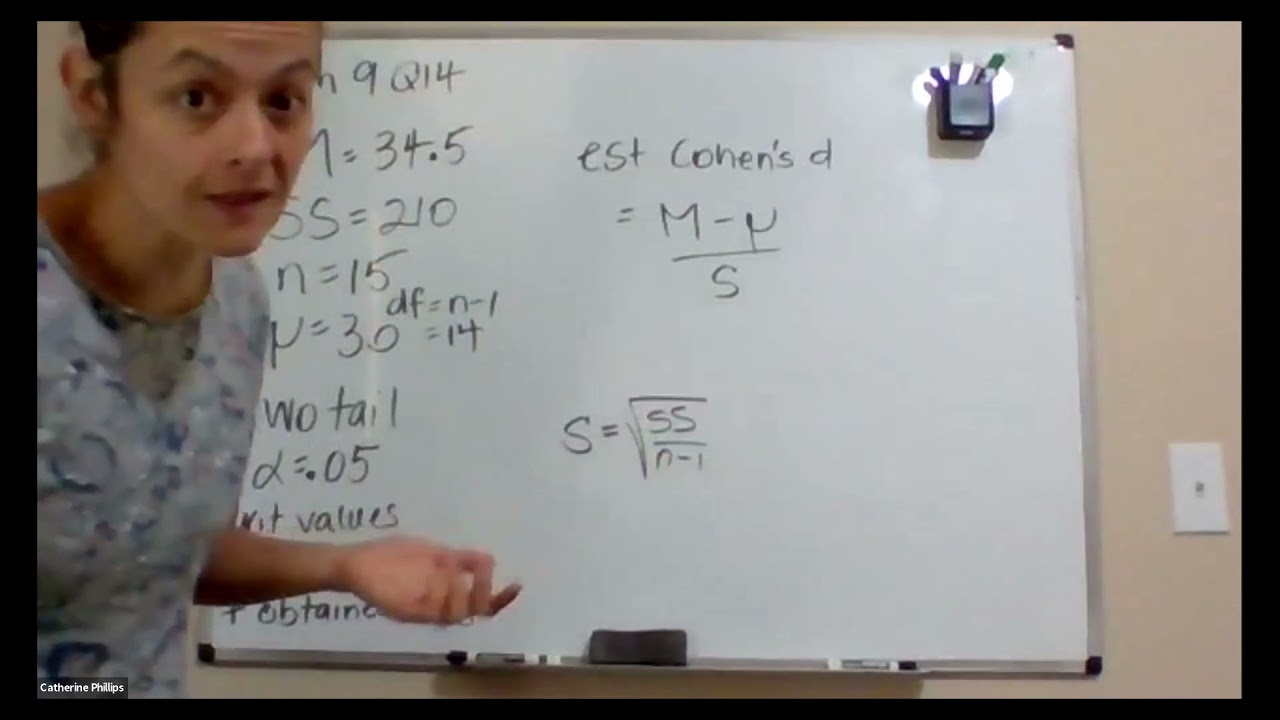 9 Q14
= 34.5
SS = 210
n = 15
df = n-1
μ = 30 = 14
wo tail
α = .05
values
obtaine
est Cohen's d
= M - μ
S
S = √SS
n-1
Catherine Phillips